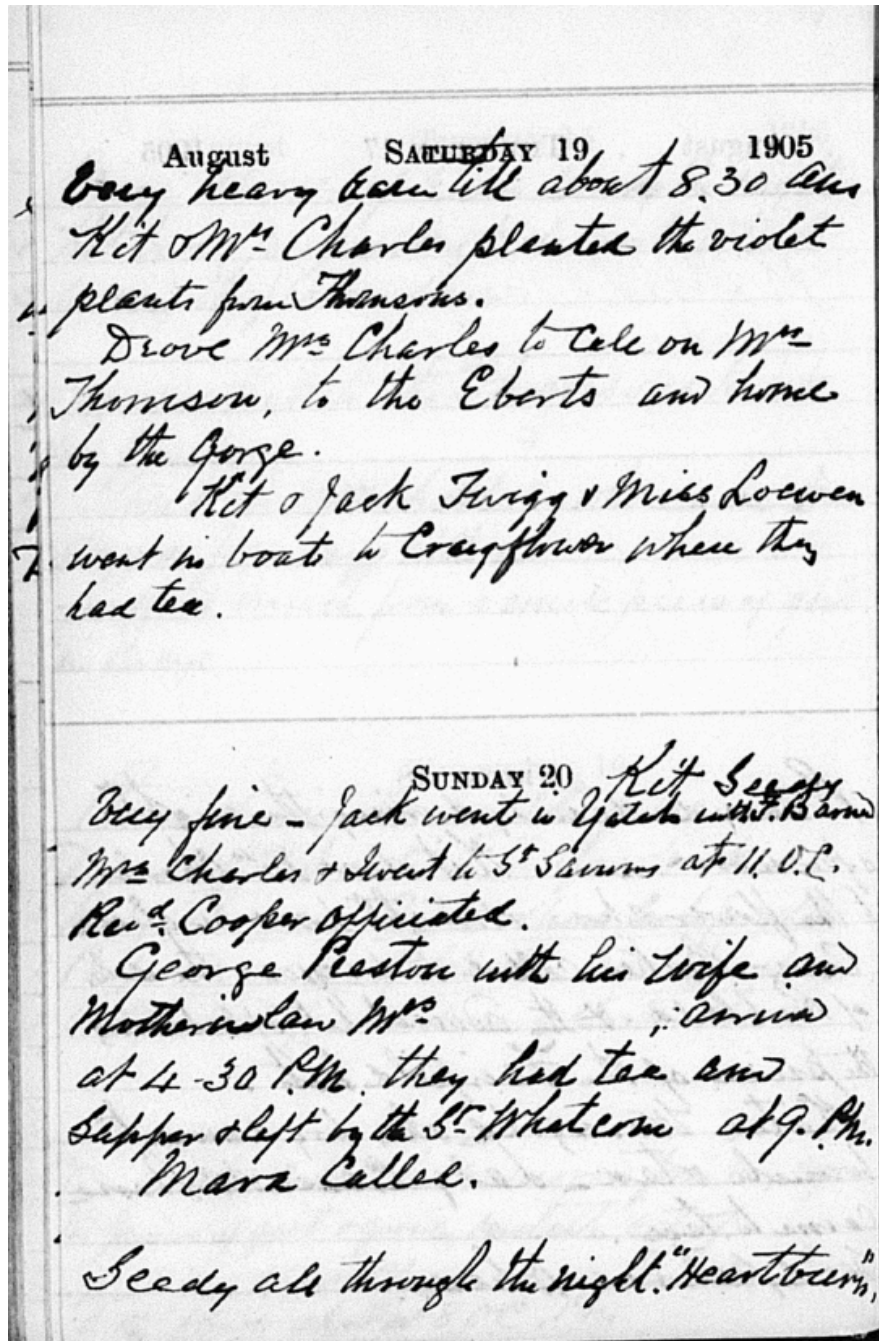 August SATURDAY 19 1905
Very heavy rain till about 8.30 am
Kit & Mrs Charles planted the violet
plants from Thomsons.
Drove Mrs Charles to call on Mrs
Thomson, to the Eberts and home
by the Gorge.
Kit & Jack Twigg & Miss Loewen
went in boats to Craigflower where they
had tea.
SUNDAY 20 Kit Seedy
Very fine – Jack went in Yatch with F. Barnard
Mrs Charles & I went to St Saviours at 11.O.C.
Revd. Cooper officiated.
George Preston with his wife and
Motherinlaw Mrs ; arrived
at 4-30 P.M. they had tea and
supper & left by the Sr. Whatcom at 9. P.M.
Mara Called.
Seedy all through the night. "Heartburn",